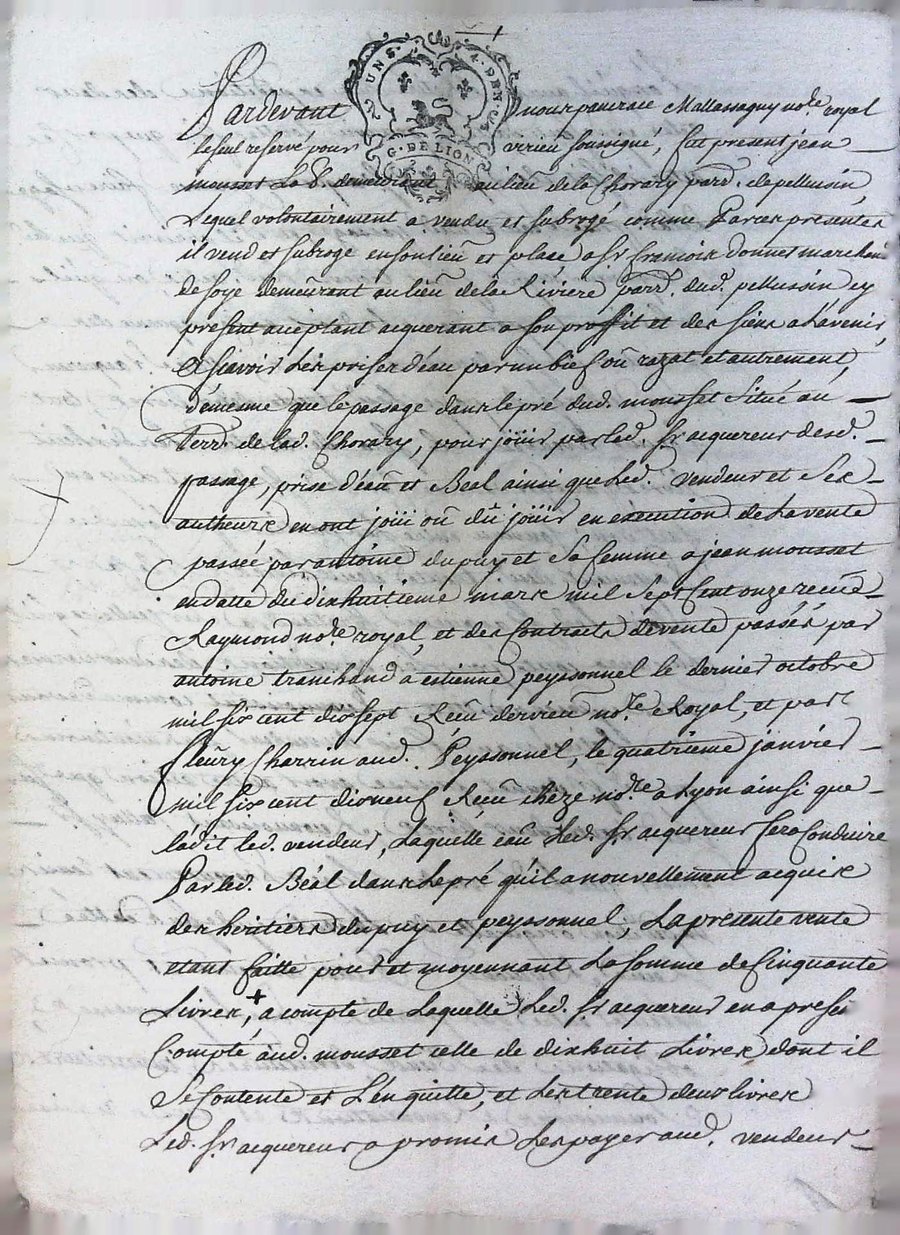 UNS. 4. DEN. ES
G. DE LION
Pardevant nous pancrace Mallassagny no.re royal
le seul reservé pour virieu soussigné, fut present jean
mousset La B. demeurant au lieu de la Chorary parr. de pellussin,
Lequel volontairement a vendu et subrogé comme Par ces presentes
il vend et subroge en son lieu et place a Sr. francois donnet marchand
de soye demeurant au lieu de la Riviere parr. dud. pellussin cy
present acceptant acquerant a son proffit et des siens a L'avenir
Et scavoir Les prises d'eau par un bief ou razat et autrement,
de mesme que le passage dans le pré dud. mousset Situé au
Terr. de lad. Chorary, pour joüir par led. Sr. acquereur desd.
passage, prise d'eau et Béal ainsi que Led. vendeur et Ses
autheurs en ont joüi ou dû joüir en execution de La vente
passée par antoine dupuy et Sa femme a jean mousset
en datte du dixhuitieme mars mil Sept Cent onze receu
Raymond no.re royal, et des Contraits de vente passés par
antoine tranchand a estienne peyssonnel le dernier octobre
mil six cent dix sept Receu dervieu no.re Royal, et par
fleury Charrin aud. Peyssonnel, le quatrieme janvier
mil six cent dix neuf Receu cheze no.re a Lyon ainsi que
la dit led. vendeur, Laquelle eau Led. Sr. acquereur fera Conduire
Par led. Béal dans Le pré qu'il a nouvellement acquis
des heritiers dupuy et peyssonnel, La presente vente
etant faitte pour et moyennant La somme de Cinquante
Livres, + a compte de Laquelle Led. Sr. acquereur en a presen
Compté aud. mousset celle de dixhuit Livres dont il
Se Contente et L'en quitte, et Les trente deux livres
Led. Sr. acquereur a promis Les payer aud. vendeur